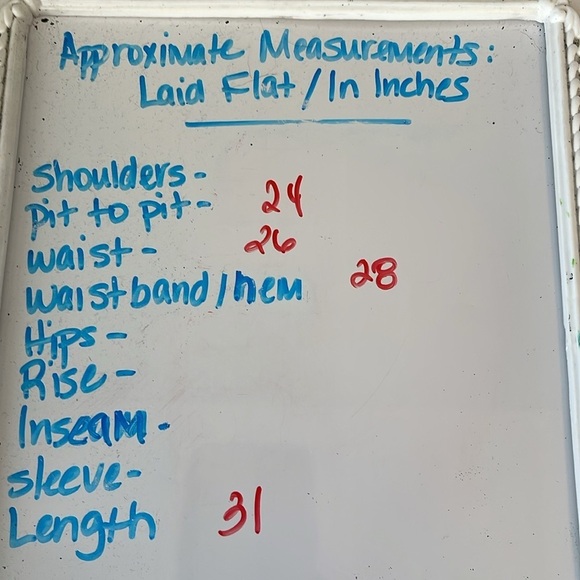 Approximate Measurements:
Laid Flat / In Inches
Shoulders -
pit to pit - 24
waist - 26
waistband / hem 28
Hips -
Rise -
Inseam -
sleeve -
Length 31